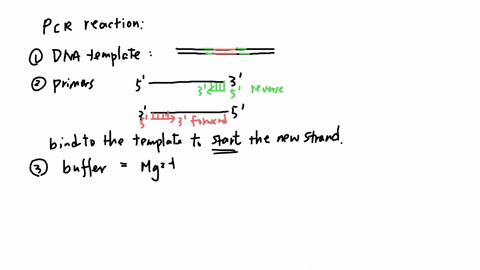 PCR reaction:
① DNA template :
② primers 5' 3'
3' 5' reverse
3' 5'
5' 3' forward
bind to the template to start the new strand.
③ buffer = Mg2+